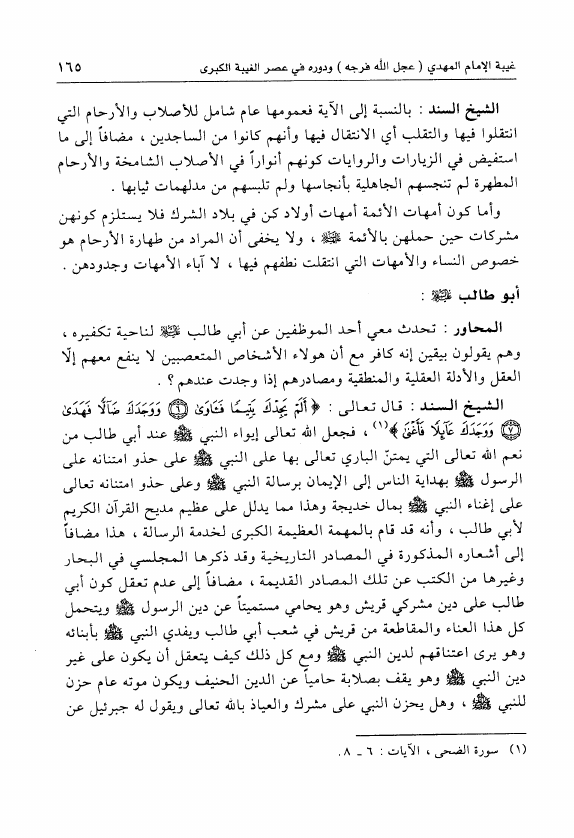 غيبة الإمام المهدي ( عجل الله فرجه ) ودوره في عصر الغيبة الكبرى ١٦٥
الشيخ السند : بالنسبة إلى الآية فعمومها عام شامل للأصلاب والأرحام التي
انتقلوا فيها والتقلب أي الانتقال فيها وأنهم كانوا من الساجدين ، مضافاً إلى ما
استفيض في الزيارات والروايات كونهم أنواراً في الأصلاب الشامخة والأرحام
المطهرة لم تنجسهم الجاهلية بأنجاسها ولم تلبسهم من مدلهمات ثيابها .
وأما كون أمهات الأئمة أمهات أولاد كن في بلاد الشرك فلا يستلزم كونهن
مشركات حين حملهن بالأئمة ، ولا يخفى أن المراد من طهارة الأرحام هو
خصوص النساء والأمهات التي انتقلت نطفهم فيها ، لا آباء الأمهات وجدودهن .
أبو طالب :
المحاور : تحدث معي أحد الموظفين عن أبي طالب لناحية تكفيره ،
وهم يقولون بيقين إنه كافر مع أن هولاء الأشخاص المتعصبين لا ينفع معهم إلّا
العقل والأدلة العقلية والمنطقية ومصادرهم إذا وجدت عندهم ؟ .
الشيخ السند : قال تعالى : ﴿ أَلَمْ يَجِدْكَ يَتِيمًا فَـَٔاوَىٰ ٦ وَوَجَدَكَ ضَآلًّا فَهَدَىٰ
٧ وَوَجَدَكَ عَآئِلًا فَأَغْنَىٰ ﴾(١) ، فجعل الله تعالى إيواء النبي ﷺ عند أبي طالب من
نعم الله تعالى التي يمتنّ الباري تعالى بها على النبي ﷺ على حذو امتنانه على
الرسول ﷺ بهداية الناس إلى الإيمان برسالة النبي ﷺ وعلى حذو امتنانه تعالى
على إغناء النبي ﷺ بمال خديجة وهذا مما يدلل على عظيم مديح القرآن الكريم
لأبي طالب ، وأنه قد قام بالمهمة العظيمة الكبرى لخدمة الرسالة ، هذا مضافاً
إلى أشعاره المذكورة في المصادر التاريخية وقد ذكرها المجلسي في البحار
وغيرها من الكتب عن تلك المصادر القديمة ، مضافاً إلى عدم تعقل كون أبي
طالب على دين مشركي قريش وهو يحامي مستميتاً عن دين الرسول ﷺ ويتحمل
كل هذا العناء والمقاطعة من قريش في شعب أبي طالب ويفدي النبي ﷺ بأبنائه
وهو يرى اعتناقهم لدين النبي ﷺ ومع كل ذلك كيف يتعقل أن يكون على غير
دين النبي ﷺ وهو يقف بصلابة حامياً عن الدين الحنيف ويكون موته عام حزن
للنبي ﷺ ، وهل يحزن النبي على مشرك والعياذ بالله تعالى ويقول له جبرئيل عن
(١) سورة الضحى ، الآيات : ٦ ـ ٨.